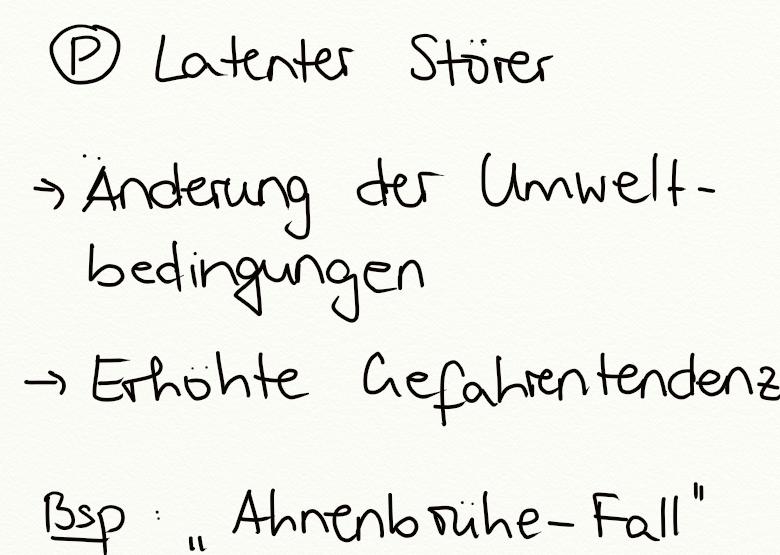 Ⓟ Latenter Störer
→ Änderung der Umwelt-
bedingungen
→ Erhöhte Gefahrentendenz
Bsp : „Ahnenbrühe-Fall"